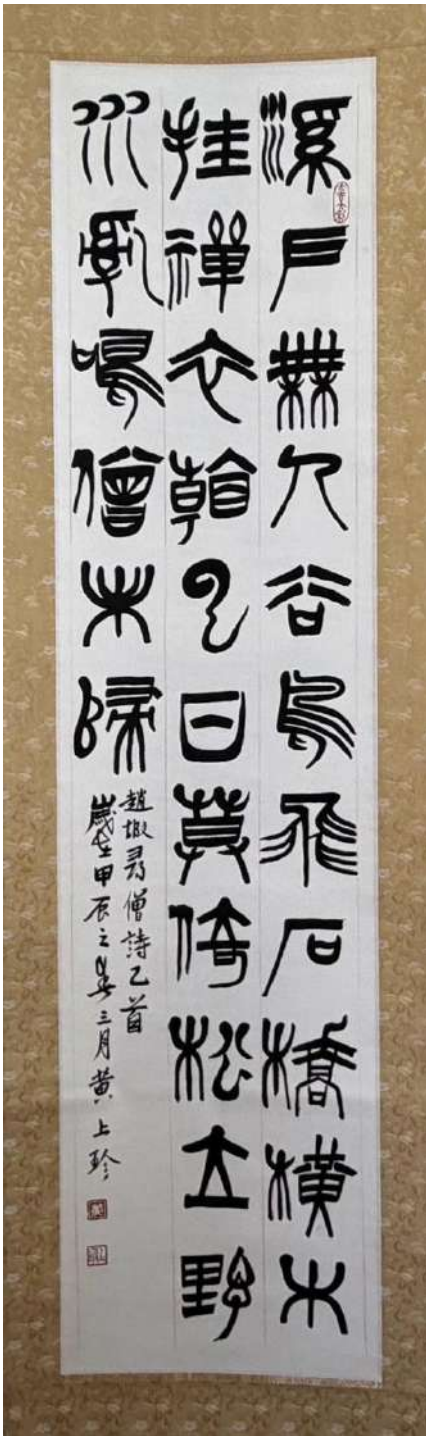 溪戶無人谷鳥飛石橋橫木
挂禪衣看云日莫倚松立野
水亂鳴僧未歸
趙嘏尋僧詩乙首
歲在甲辰之春三月黃上珍